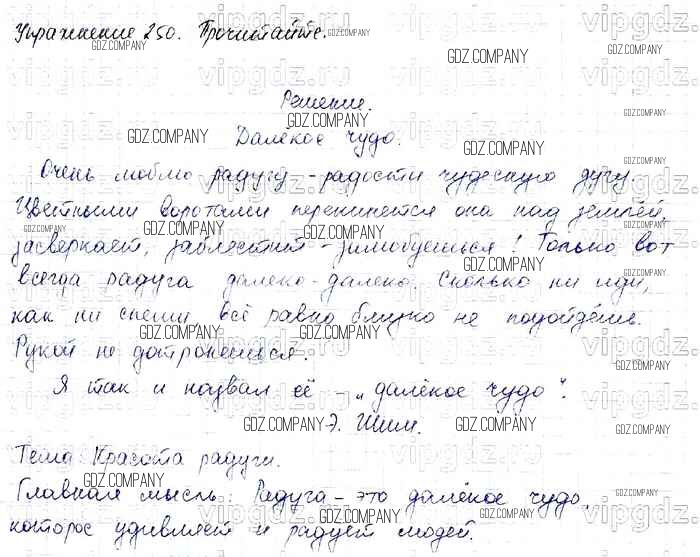 Упражнение 250. Прочитайте.
Решение.
Далёкое чудо.
Очень люблю радугу - радости чудесную дугу.
Цветными воротами перекинется она над землёй,
засверкает, заблестит - залюбуешься! Только вот
всегда радуга далеко-далеко. Сколько ни иди,
как ни спеши, всё равно близко не подойдёшь.
Рукой не дотронешься.
Я так и назвал её - „далёкое чудо".
Э. Шим.
Тема: Красота радуги.
Главная мысль: Радуга - это далёкое чудо,
которое удивляет и радует людей.